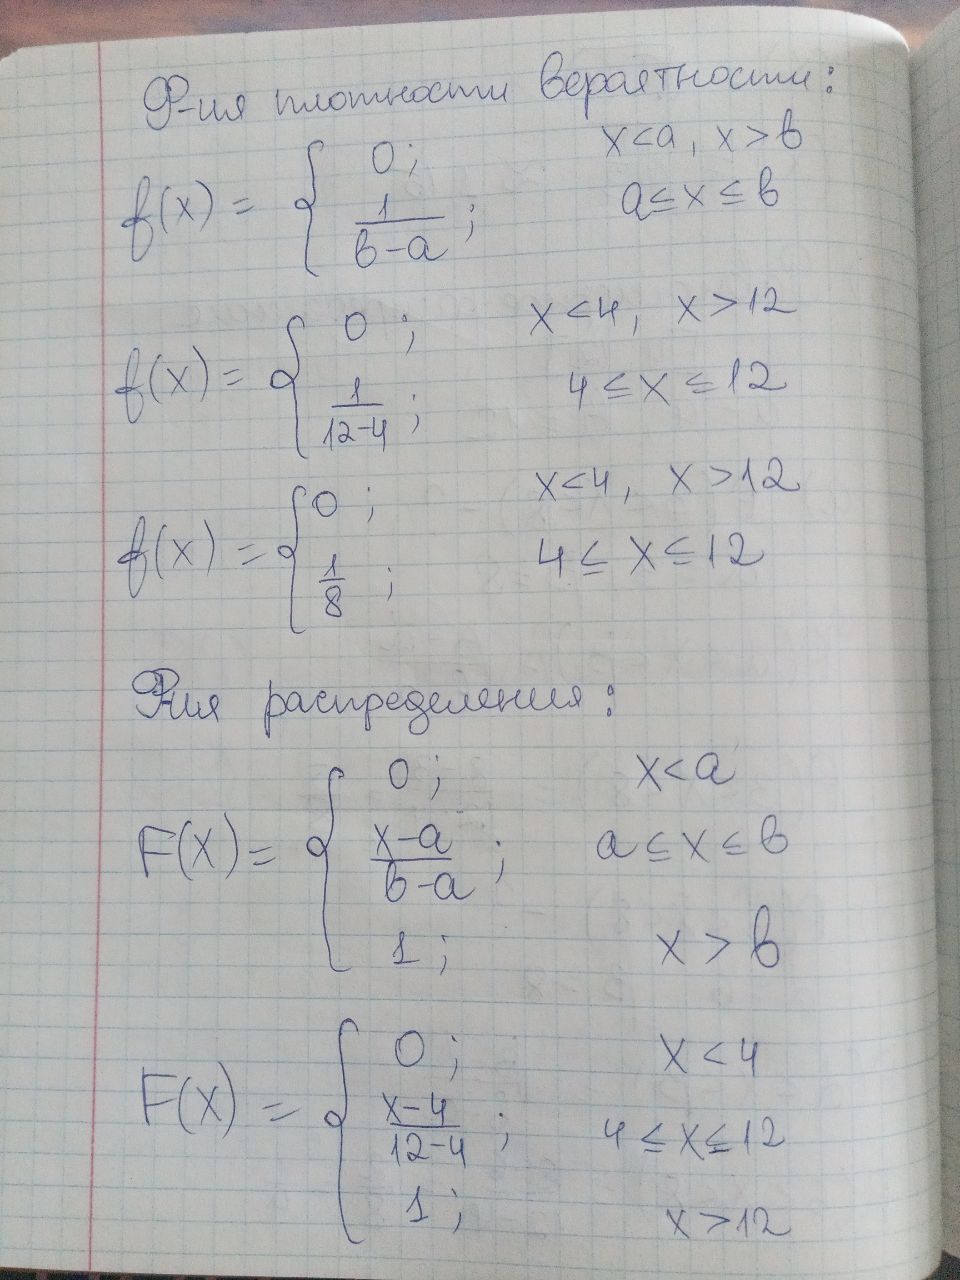 Ф-ия плотности вероятности:
f(x) = { 0; x<a, x>b
1/(b-a); a≤x≤b
f(x) = { 0; x<4, x>12
1/(12-4); 4≤x≤12
f(x) = { 0; x<4, x>12
1/8; 4≤x≤12
Ф-ия распределения:
F(x) = { 0; x<a
(x-a)/(b-a); a≤x≤b
1; x>b
F(x) = { 0; x<4
(x-4)/(12-4); 4≤x≤12
1; x>12